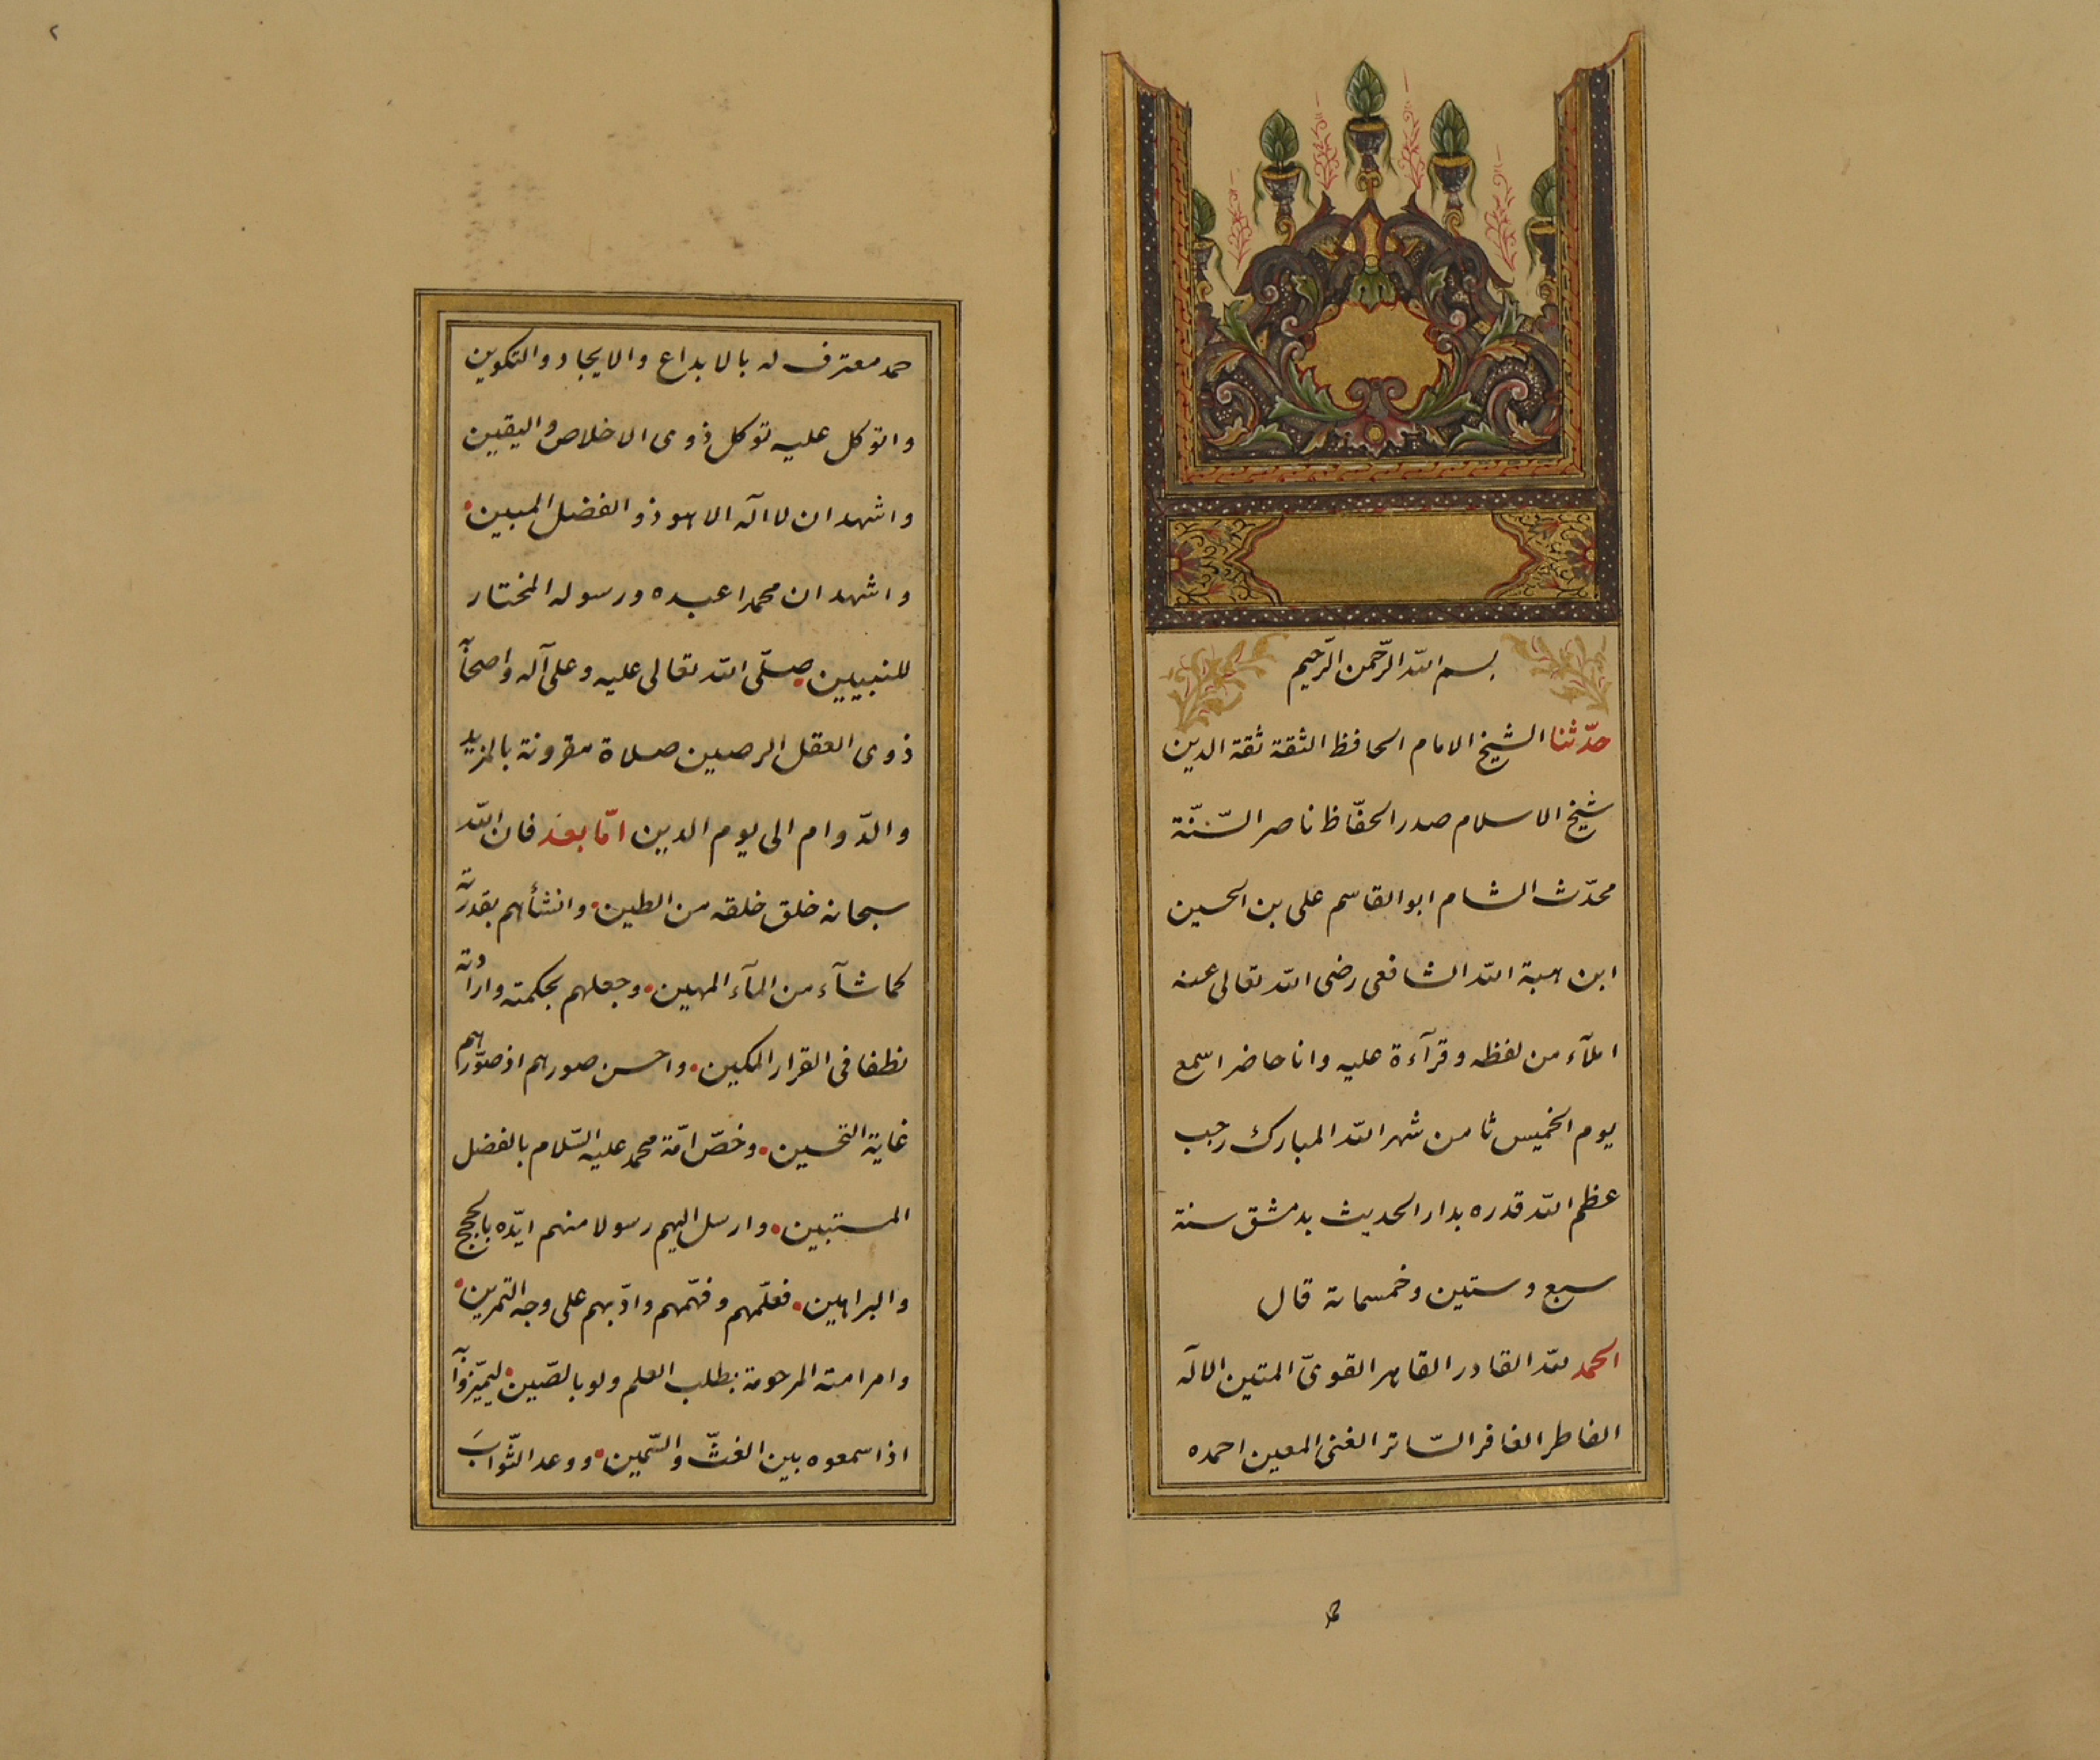 بسم الله الرّحمن الرّحيم
حدّثنا الشيخ الامام الحافظ الثقة ثقة الدين
شيخ الاسلام صدر الحفّاظ ناصر السّنّة
محدّث الشام ابو القاسم على بن الحسين
ابن هبة الله الشافعى رضى الله تعالى عنه
املآء من لفظه وقرآءة عليه وانا حاضر اسمع
يوم الخميس ثامن شهر الله المبارك رجب
عظم الله قدره بدار الحديث بدمشق سنة
سبع وستين وخمسمائة قال
الحمد لله القادر القاهر القوىّ المتين الاله
الفاطر الغافر السّاتر الغنى المعين احمده
٢
حمد معترف له بالابداع والايجاد والتكوين
واتوكل عليه توكل ذوى الاخلاص واليقين
واشهد ان لا اله الا هو ذو الفضل المبين
واشهد ان محمدا عبده ورسوله المختار
للنبيين صلّى الله تعالى عليه وعلى آله واصحابه
ذوى العقل الرصين صلاة مقرونة بالمزيد
والدّوام الى يوم الدين امّا بعد فان الله
سبحانه خلق خلقه من الطين وانشأهم بقدرته
كما شآء من المآء المهين وجعلهم بحكمته وارادته
نطفا فى القرار المكين واحسن صورهم اذ صوّرهم
غاية التحسين وخصّ امّة محمد عليه السّلام بالفضل
المستبين وارسل اليهم رسولا منهم ايّده بالحجج
والبراهين فعلّمهم وفهّمهم وادّبهم على وجه التمرين
وامر امته المرحومة بطلب العلم ولو بالصّين ليميّزوا به
اذا سمعوه بين الغثّ والسّمين ووعد الثّوابَ